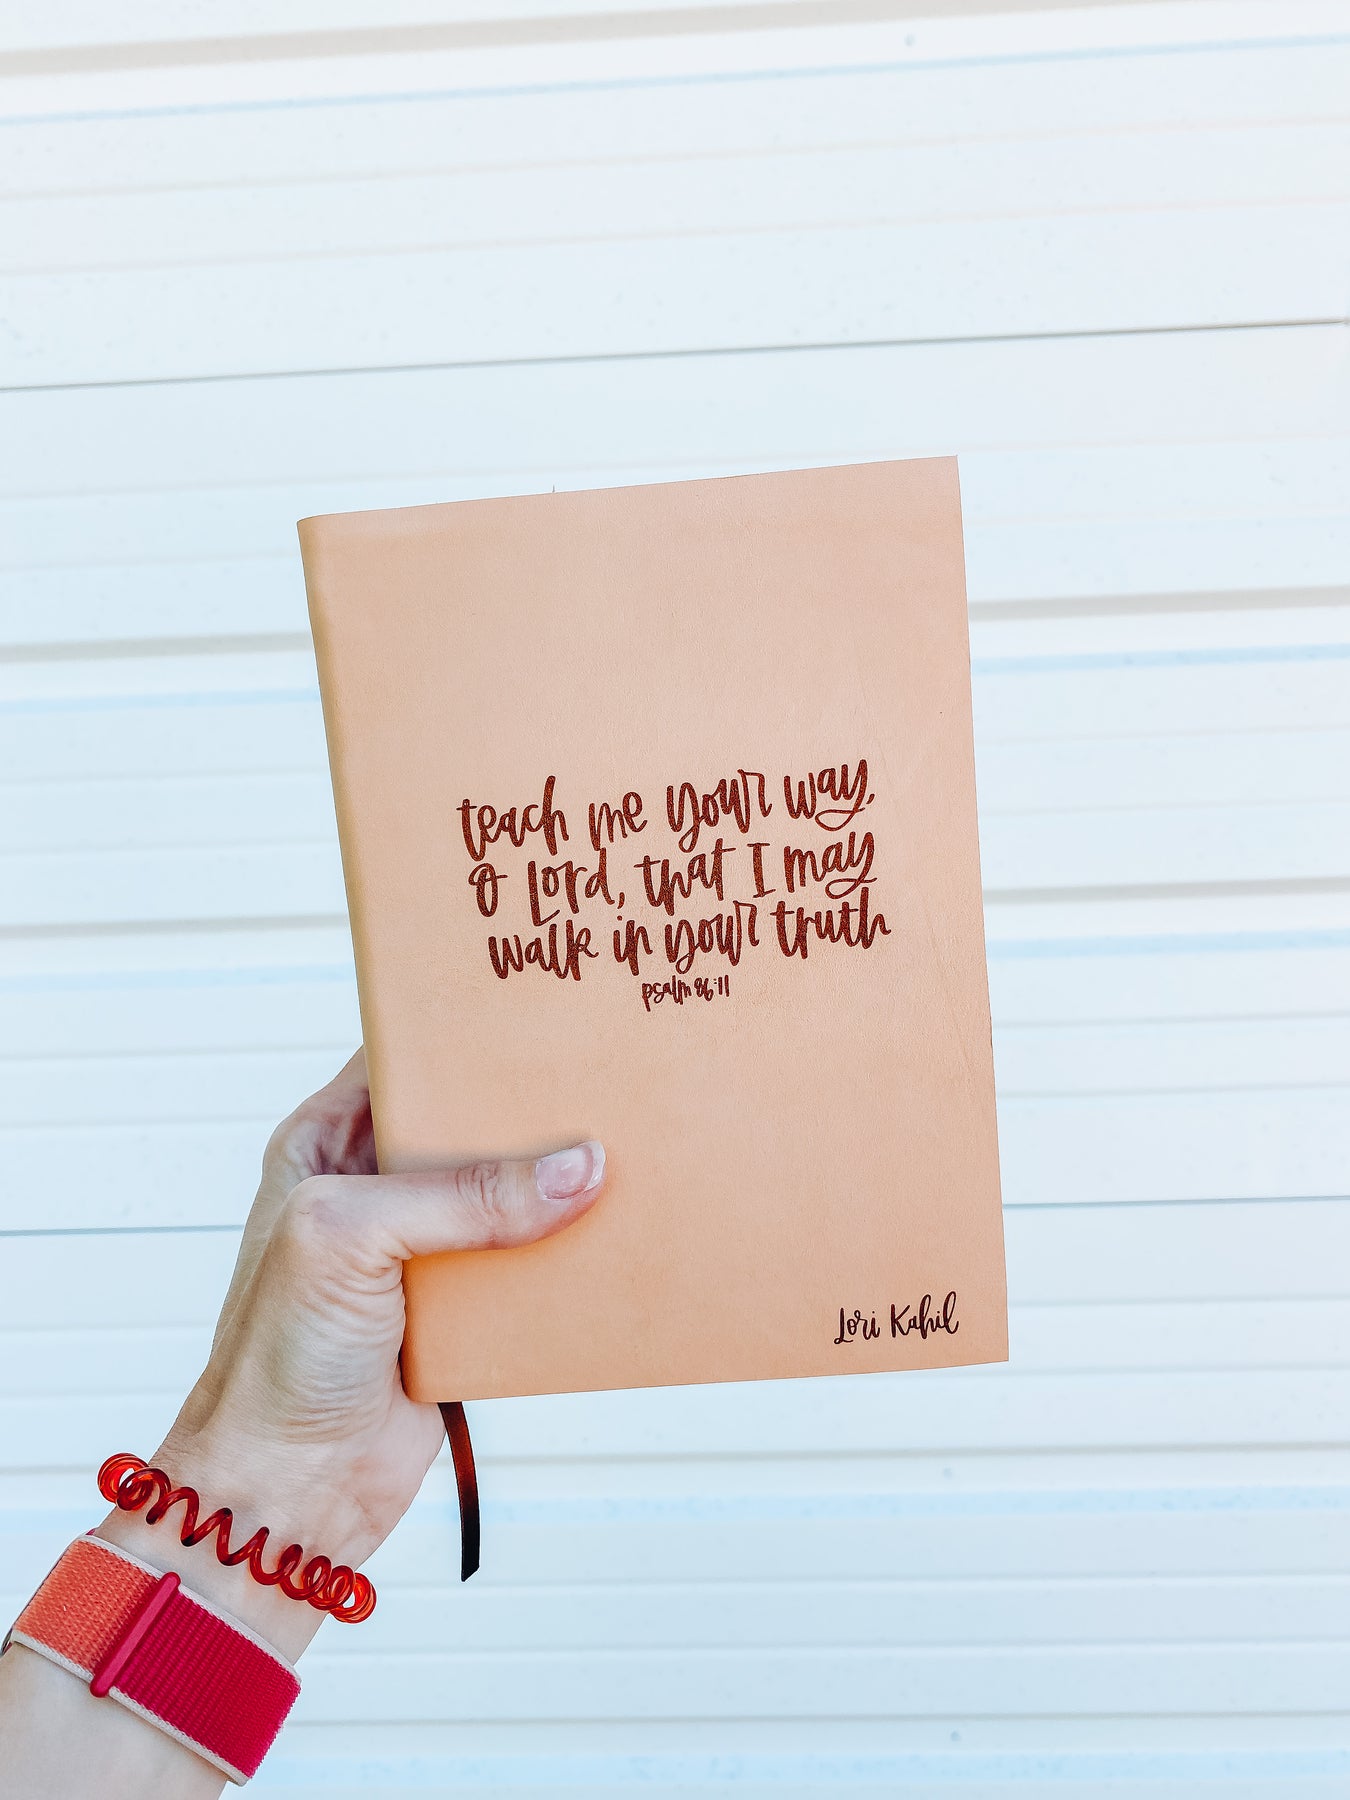 teach me your way,
O Lord, that I may
walk in your truth
psalm 86:11
Lori Kahil